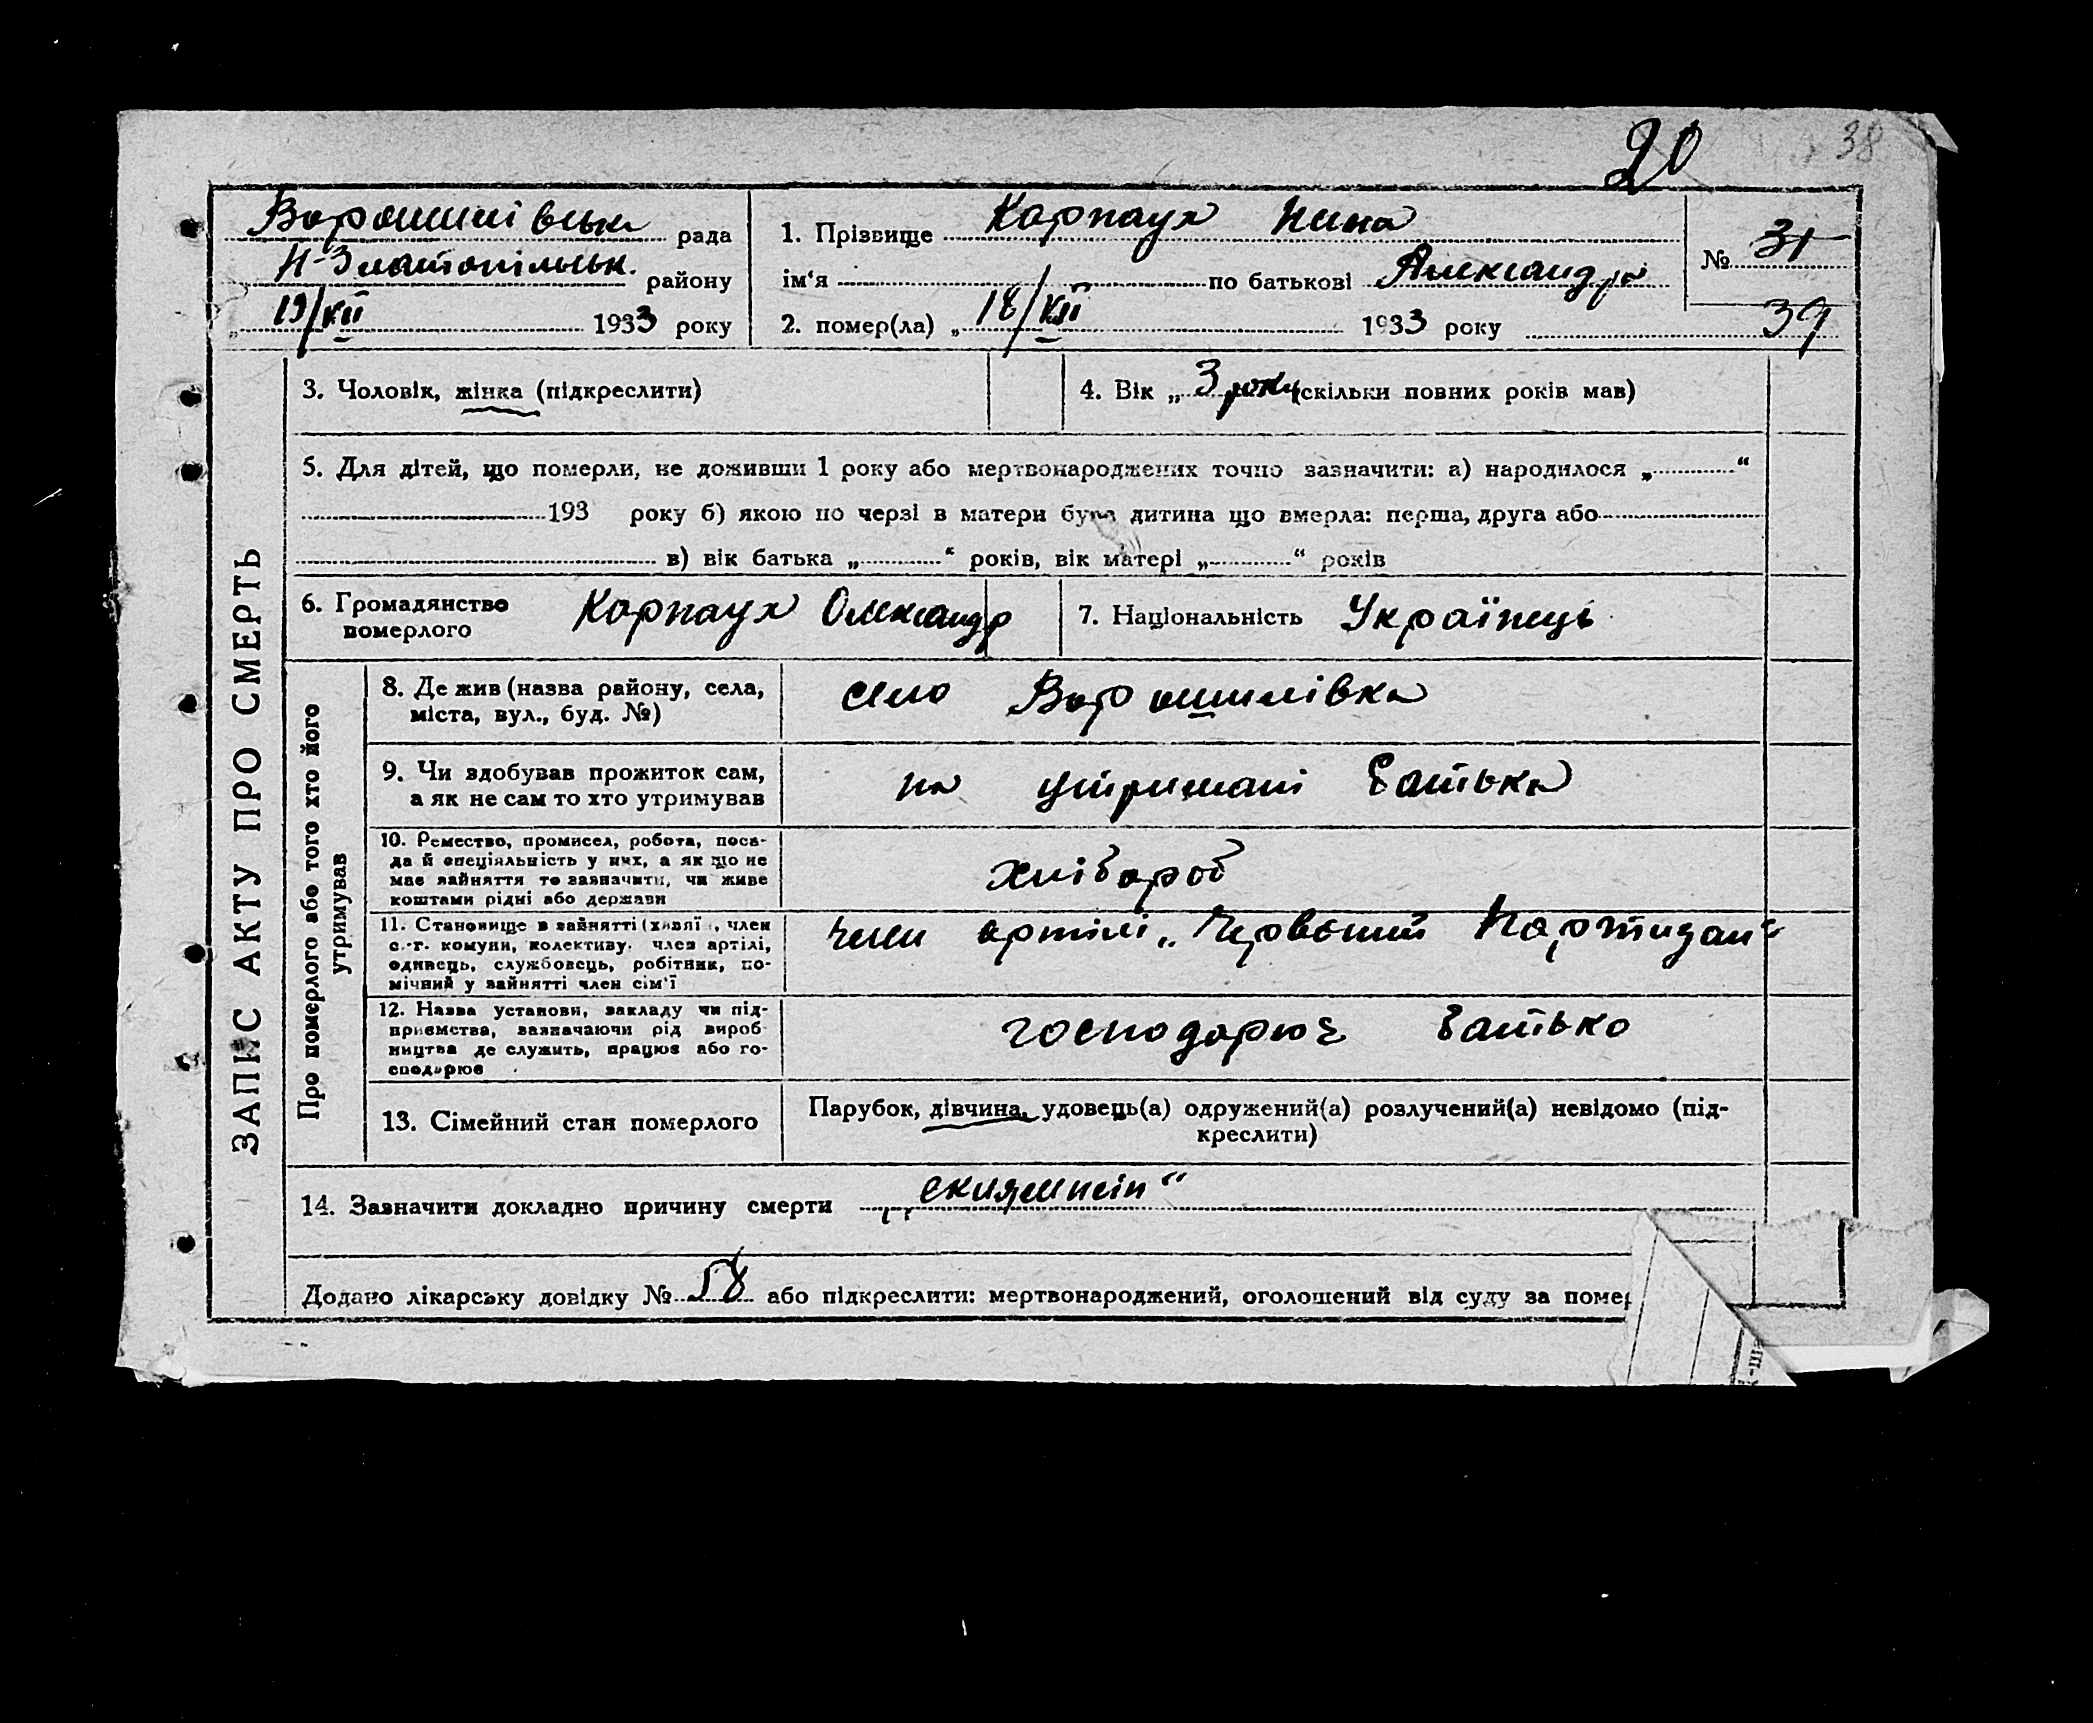 20 38
Ворошилівська рада
Н-Златопільськ. району
19/XII 1933 року
1. Прізвище Карпаух Нина
ім‘я по батькові Александра
2. помер(ла) „ 18/XII 1933 року
№ 31
39
ЗАПИС АКТУ ПРО СМЕРТЬ
3. Чоловік, жінка (підкреслити)
4. Вік „ 3 роки (скільки повних років мав)
5. Для дітей, що померли, не доживши 1 року або мертвонароджених точно зазначити: а) народилося „ “
193 року б) якою по черзі в матери була дитина що вмерла: перша, друга або
в) вік батька „ “ років, вік матері „ “ років
6. Громадянство
померлого
Карпаух Олександр
7. Національність Українець
Про померлого або того хто його
утримував
8. Де жив (назва району, села,
міста, вул., буд. №)
село Ворошилівка
9. Чи здобував прожиток сам,
а як не сам то хто утримував
на утримані батька
10. Ремество, промисел, робота, поса-
да й спеціяльність у них, а як що не
має зайняття то зазначити, чи живе
коштами рідні або держави
хлібороб
11. Становище в зайнятті (хазяї , член
с.-г. комуни, колективу. член артілі,
одинець, службовець, робітник, по-
мічний у зайнятті член сім'ї
член артілі „Червоний Партизан“
12. Назва установи, закладу чи під-
приємства, зазначаючи рід вироб-
ництва де служить, працює або го-
сподарює
господарює батько
13. Сімейний стан померлого
Парубок, дівчина, удовець(а) одружений(а) розлучений(а) невідомо (під-
креслити)
14. Зазначити докладно причину смерти
Додано лікарську довідку № 58 або підкреслити: мертвонароджений, оголошений від суду за помер